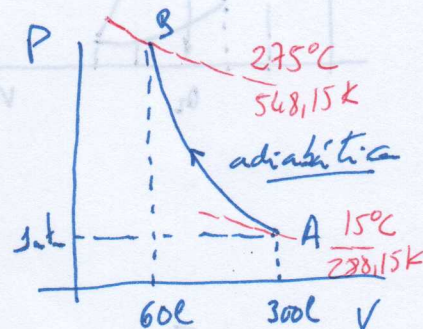 P
B
275°C
548,15K
adiabática
1at.
A
15°C
288,15K
60l
300l
V